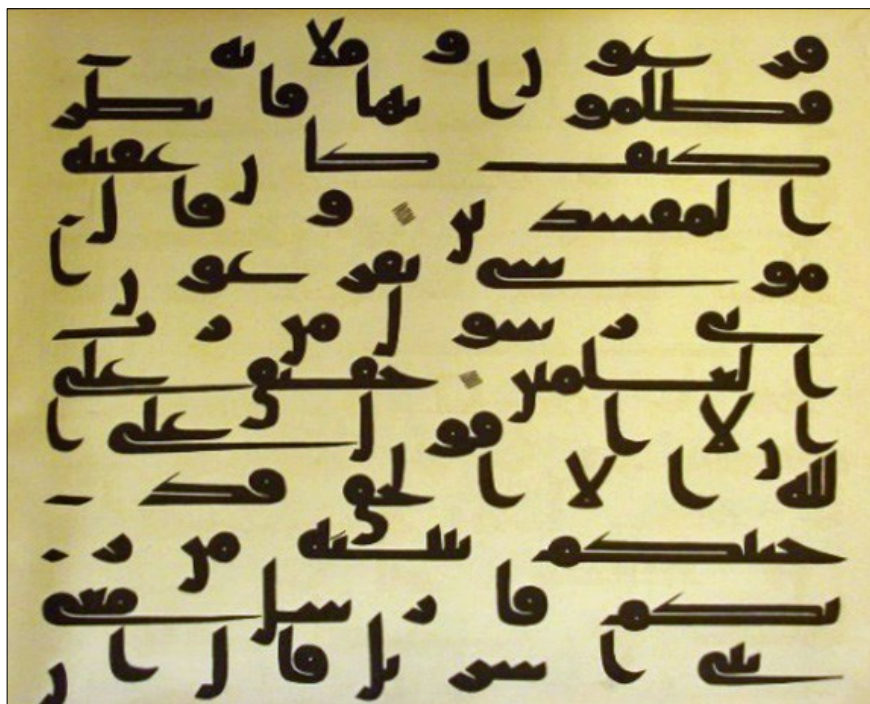 فرعون وملايه
فظلموا بها فانظر
كيف كان عقبه
المفسدين وقال
موسى يفرعون ا
ني رسول من رب
العلمين حقيق على
ان لا اقول على ا
لله الا الحق قد
جيتكم ببينه من ر
بكم فارسل معي
بني اسريل قال ان